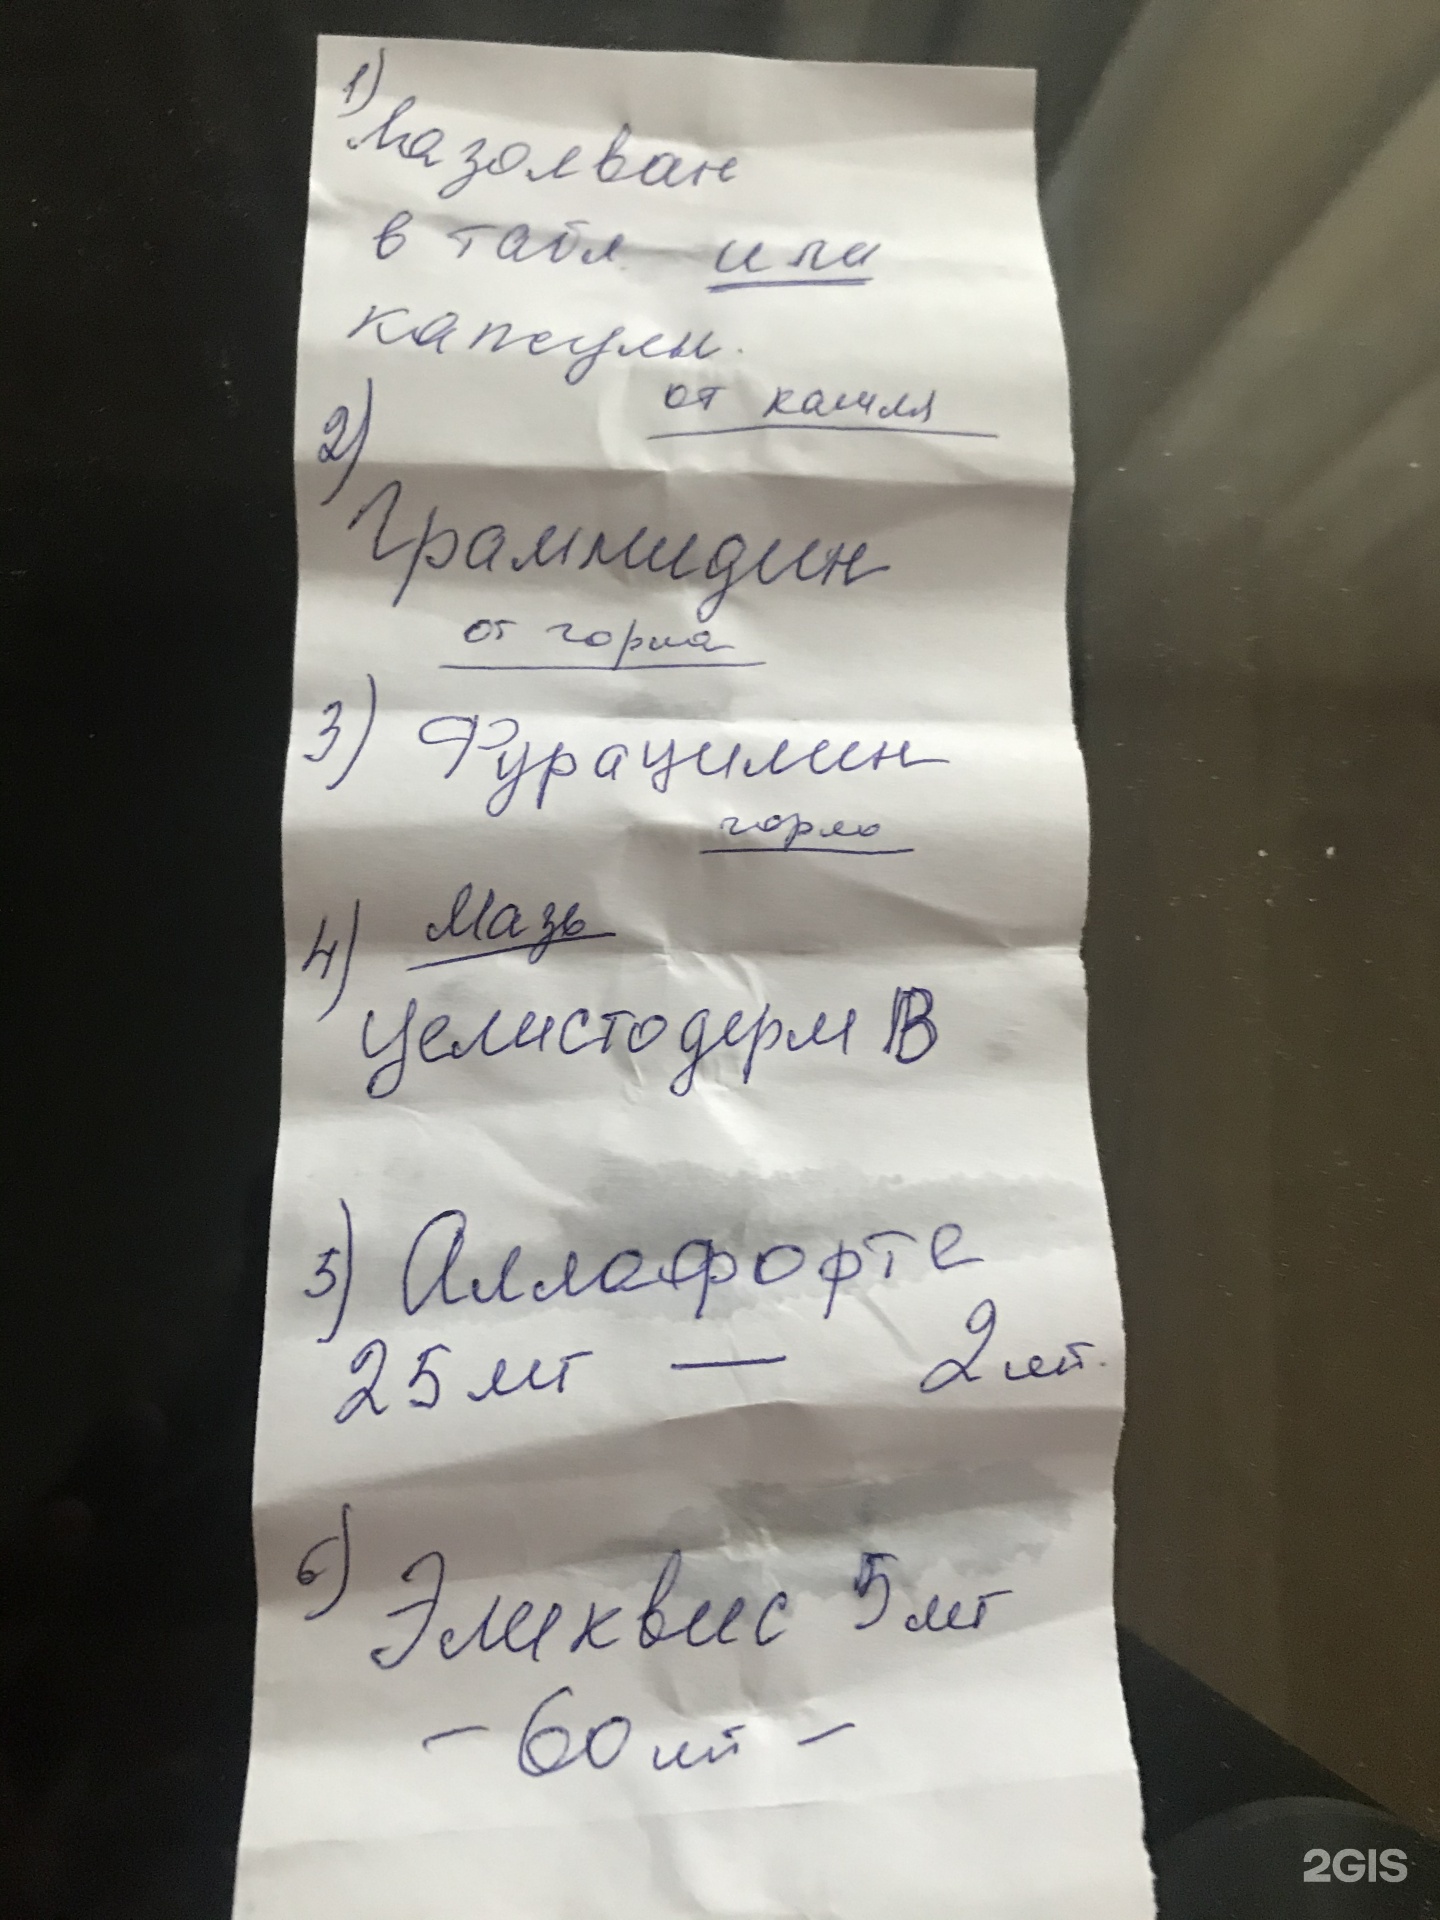 1)
Лазолван
в табл или
капсулы.
от кашля
2)
Граммидин
от горла
3) Фурацилин
горло
4) Мазь
Целистодерм В
5) Аллафорте
25 мг — 2 шт.
6) Эликвис 5 мг
- 60 шт -
2GIS